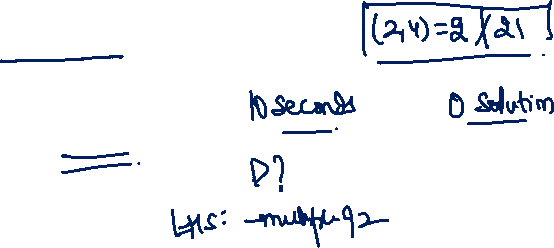 (2,4)=2 ∤ 21
10 seconds 0 solution
D?
LHS: multiple of 2